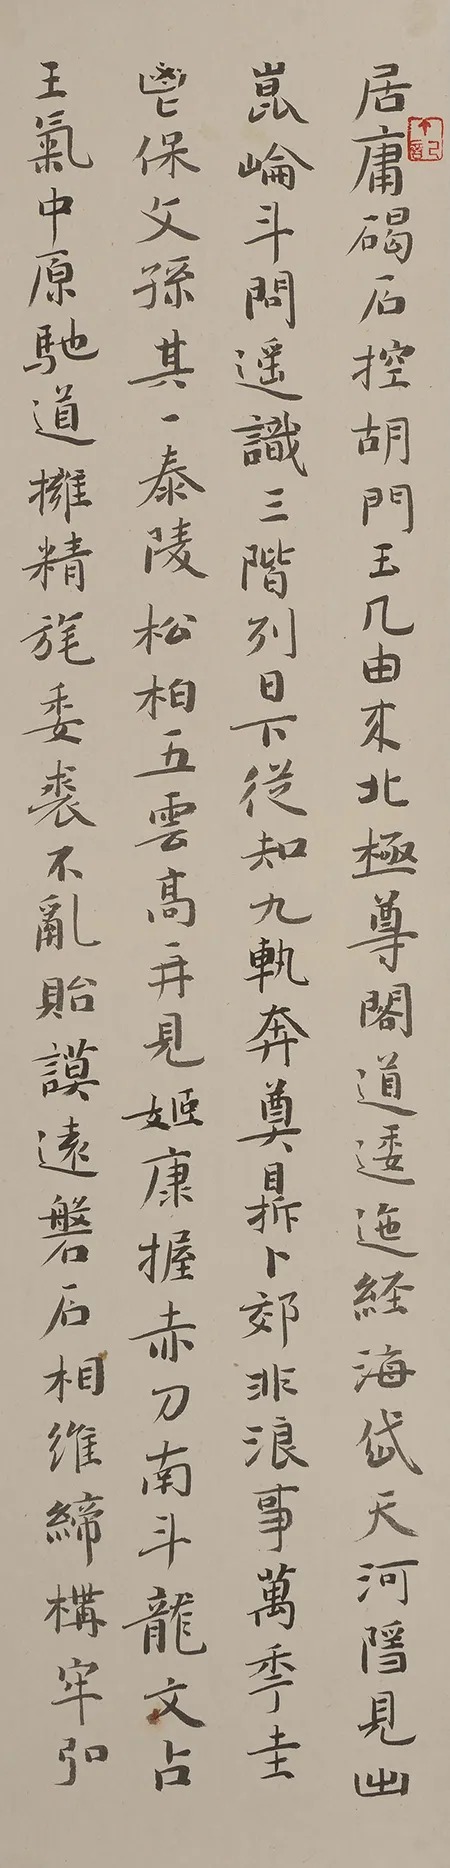 居庸碣石控胡門玉几由来北極尊閣道逶迤經海岱天河隱見出
崑崙斗間遥識三階列日下從知九軌奔奠鼎卜郊非浪事萬秊圭
鬯保文孫其一泰陵松柏五雲高再見姬康握赤刀南斗龍文占
王氣中原馳道擁精旄委裘不亂貽謨遠磐石相維締構牢弘